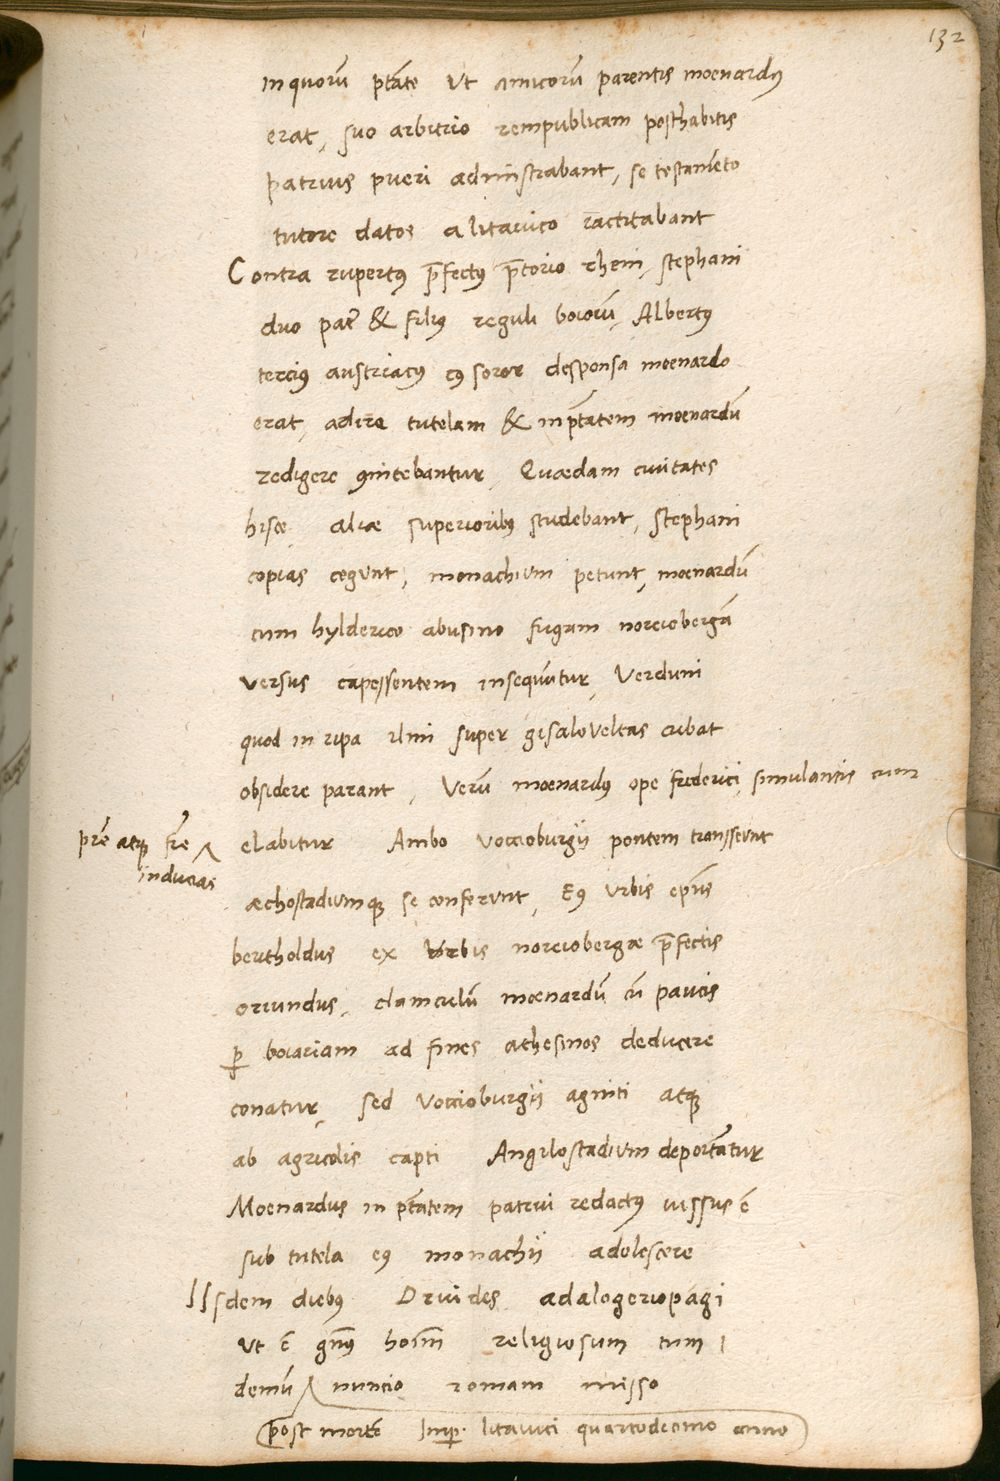 132
in quorũ ptãte ut amicorũ parentis moenardꝯ
erat, suo arbitrio rempublicam posthabitis
patruis pueri adminstrabant, se testamẽto
tutore datos a litavico iactitabant
Contra rupertꝯ p̄fectꝯ p̄torio rheni, stephani
duo pat̃ & filiꝯ reguli boiorũ, Albertꝯ
terciꝯ austriacꝯ cꝯ soror desponsa moenardo
erat, adire tutelam & in ptãtem moenardũ
redigere ꝯnitebantur, Quaedam civitates
hisce, aliae superioribꝯ studebant, stephani
copias cogunt, monachium petunt, moenardũ
cum hylderico abusino fugam noreiobergã
versus capessentem insequũtur, Verduni
quod in ripa ilmi super gisaloveltas cubat
obsidere parant, Verũ moenardꝯ ope frederici, simulantis cum
prẽ atqꝫ frẽ
inducias
elabitur Ambo vocioburgii pontem transseunt
aechostadiumqꝫ se conferunt, Eꝯ urbis ep̃us
bertholdus ex urbis noreiobergae p̄fectis
oriundus, clamculũ moenardũ cũ paucis
ꝑ boiariam ad fines athesinos deducere
conatur, sed vocioburgii agniti atqꝫ
ab agricolis capti Angilostadium deportãtur
Moenardus in ptãtem patrui redactꝯ iussus ẽ
sub tutela eꝯ monachii adolescere
IIsdem diebꝯ Druides adalogeriopagi
ut ẽ gñꝯ hoĩm religiosum tum i
demũ nuncio romam misso
post mortẽ Imp. litavici quartodecimo anno